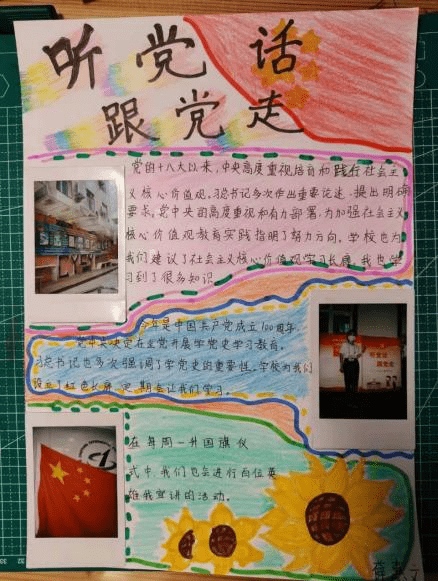 听党话
跟党走
党的十八大以来,中央高度重视培育和践行社会主
义核心价值观。习总书记多次作出重要论述、提出明确
要求。党中央的高度重视和有力部署,为加强社会主义
核心价值观教育实践指明了努力方向。学校也为
我们建议了社会主义核心价值观学习长廊,我也学
习到了很多知识。
今年是中国共产党成立100周年,
党中央决定在全党开展学党史学习教育。
习总书记也多次强调了学党史的重要性。学校为我们
设立了红色长廊,定期会让我们学习。
听党话
跟党走
在每周一升国旗仪
式中,我们也会进行百位英
雄我宣讲的活动。